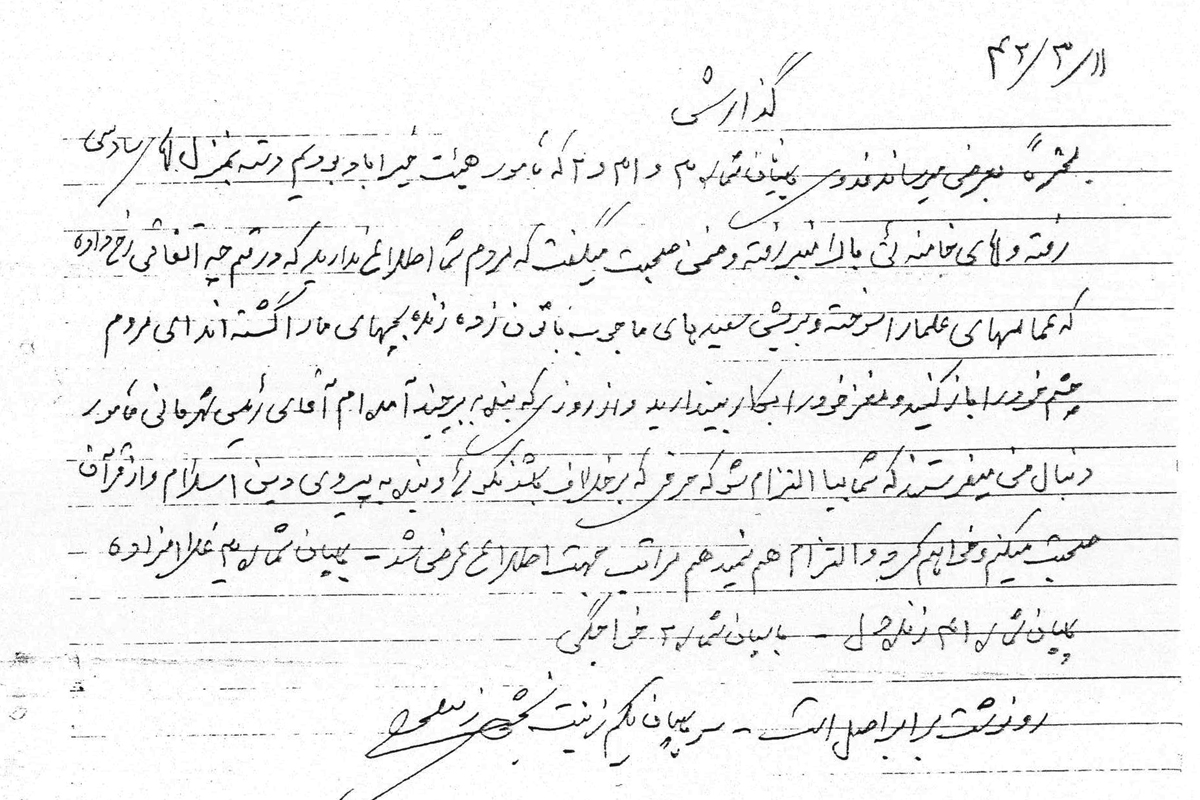 ۴۲/۳/۱۱
گذارش
محترماً بعرض میرساند فدوی پاسبان شماره ۳ و ۴۱ و ۲ که مامور هیئت خیراباد بودیم دسته بمنزل سادسی
رفته و خامنه ئی بالا منبر رفته و ضمن صحبت میگفت که مردم شما اطلاع ندارید که در قم چه اتفاقی رخ داده
که عمامهای علما را سوخته و بریش سفیدهای ما چوب باتون زده زنده بچهای ما را کشته اند ای مردم
چشم خود را باز کنید و مغز خود را بکار بیندازید و از روزی که بنده به بیرجند آمده ام آقای رئیس شهربانی مامور
دنبال من میفرستند که شما بیا التزام شو که حرفی که بر خلاف باشد نگوئی و بنده به پیروی دین اسلام و از قرآن
صحبت میکنم و خواهم کرد و التزام هم نمیدهم مراتب جهت اطلاع عرض شد - پاسبان شماره ۳ غلامزاده
پاسبان شماره ۴۱ زنده دل - پاسبان شماره ۲ خواجگی
رونوشت برابر اصل است - سرپاسبان یکم زینت بخش